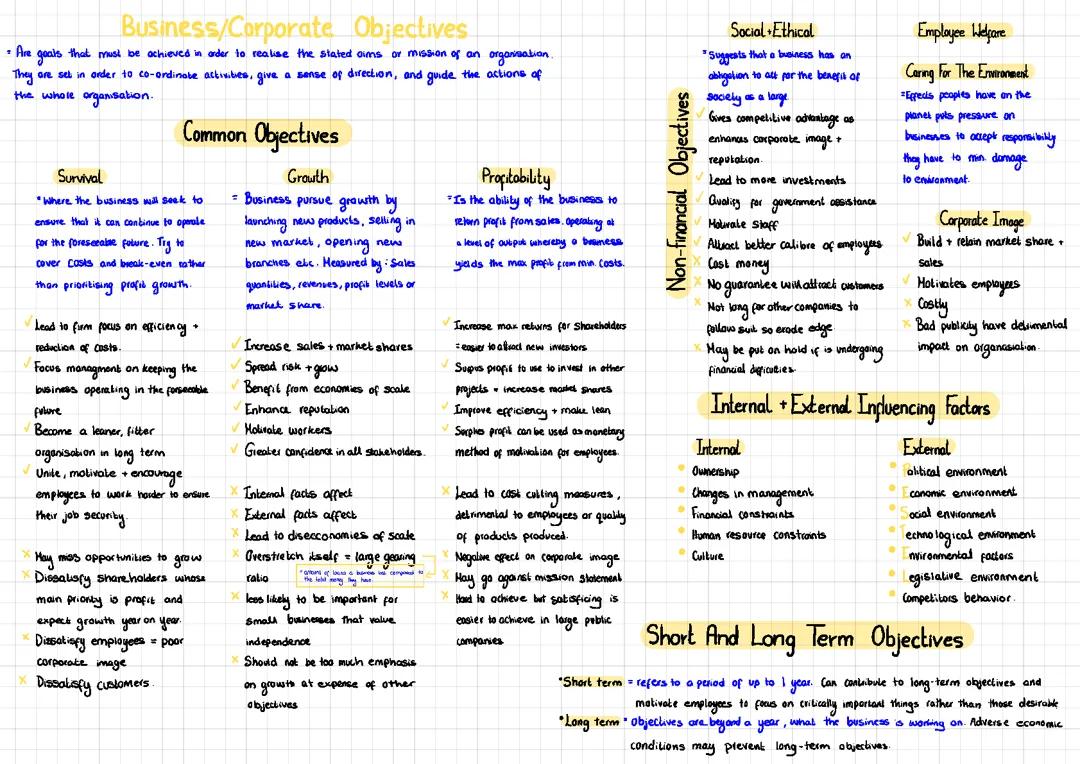 Business/Corporate Objectives
= Are goals that must be achieved in order to realise the stated aims or mission of an organisation.
They are set in order to co-ordinate activities, give a sense of direction, and guide the actions of
the whole organisation.
Common Objectives
Survival
= Where the business will seek to
ensure that it can continue to operate
for the foreseeable future. Try to
cover costs and break-even rather
than prioritising profit growth.
✓ Lead to firm focus on efficiency +
reduction of costs.
✓ Focus managment on keeping the
business operating in the forseeable
future
✓ Become a leaner, fitter
organisation in long term
✓ Unite, motivate + encourage
employees to work harder to ensure
their job security.
× May miss opportunities to grow
× Dissatisfy shareholders whose
main priority is profit and
expect growth year on year.
× Dissatisfy employees = poor
corporate image
× Dissatisfy customers.
Growth
= Business pursue growth by
launching new products, selling in
new market, opening new
branches etc. Measured by: Sales
quantities, revenues, profit levels or
market share.
✓ Increase sales + market shares
✓ Spread risk + grow
✓ Benefit from economies of scale
✓ Enhance reputation
✓ Motivate workers
✓ Greater confidence in all stakeholders.
× Internal facts affect
× External facts affect
× Lead to diseconomies of scale
× Overstretch itself = large gearing
ratio
* amount of loans a business has compared to
the total money they have.
× less likely to be important for
small businesses that value
independence
× Should not be too much emphasis
on growth at expense of other
objectives
Profitability
= Is the ability of the business to
return profit from sales. Operating at
a level of output whereby a business
yields the max profit from min. costs.
✓ Increase max returns for shareholders
= easier to attract new investors
✓ Surpus profit to use to invest in other
projects = increase market shares
✓ Improve efficiency + make lean
✓ Surplus profit can be used as monetary
method of motivation for employees.
× Lead to cost cutting measures,
detrimental to employees or quality
of products produced.
× Negative effect on corporate image
× May go against mission statement
× Hard to achieve but satisficing is
easier to achieve in large public
companies.
Non-financial Objectives
Social + Ethical
= Suggests that a business has an
obligation to act for the benefit of
society as a large.
✓ Gives competitive advantage as
enhances corporate image +
reputation.
✓ Lead to more investments
✓ Quality for government assistance
✓ Motivate staff
✓ Attract better calibre of employees
× Cost money
× No guarantee will attract customers
× Not long for other companies to
follow suit so erode edge
× May be put on hold if is undergoing
financial difficulties.
Employee Welfare
Caring For The Environment
= Effects peoples have on the
planet puts pressure on
businesses to accept responsibility
they have to min. damage
to environment.
Corporate Image
✓ Build + retain market share +
sales
✓ Motivates employees
× Costly
× Bad publicity have detrimental
impact on organasiation.
Internal + External Influencing Factors
Internal
• Ownership
• Changes in management
• Financial constraints
• Human resource constraints
• Culture
External
• Political environment
• Economic environment
• Social environment
• Technological environment
• Environmental factors
• Legislative environment
• Competitors behavior.
Short And Long Term Objectives
• Short term = refers to a period of up to 1 year. Can contribute to long-term objectives and
motivate employees to focus on critically important things rather than those desirable
• Long term = Objectives are beyond a year, what the business is working on. Adverse economic
conditions may prevent long-term objectives.